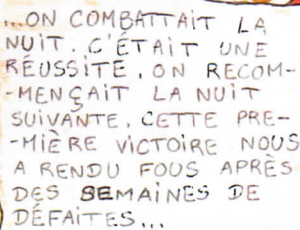 ...ON COMBATTAIT LA
NUIT. C'ÉTAIT UNE
RÉUSSITE. ON RECOM-
-MENÇAIT LA NUIT
SUIVANTE. CETTE PRE-
-MIÈRE VICTOIRE NOUS
A RENDU FOUS APRÈS
DES SEMAINES DE
DÉFAITES...